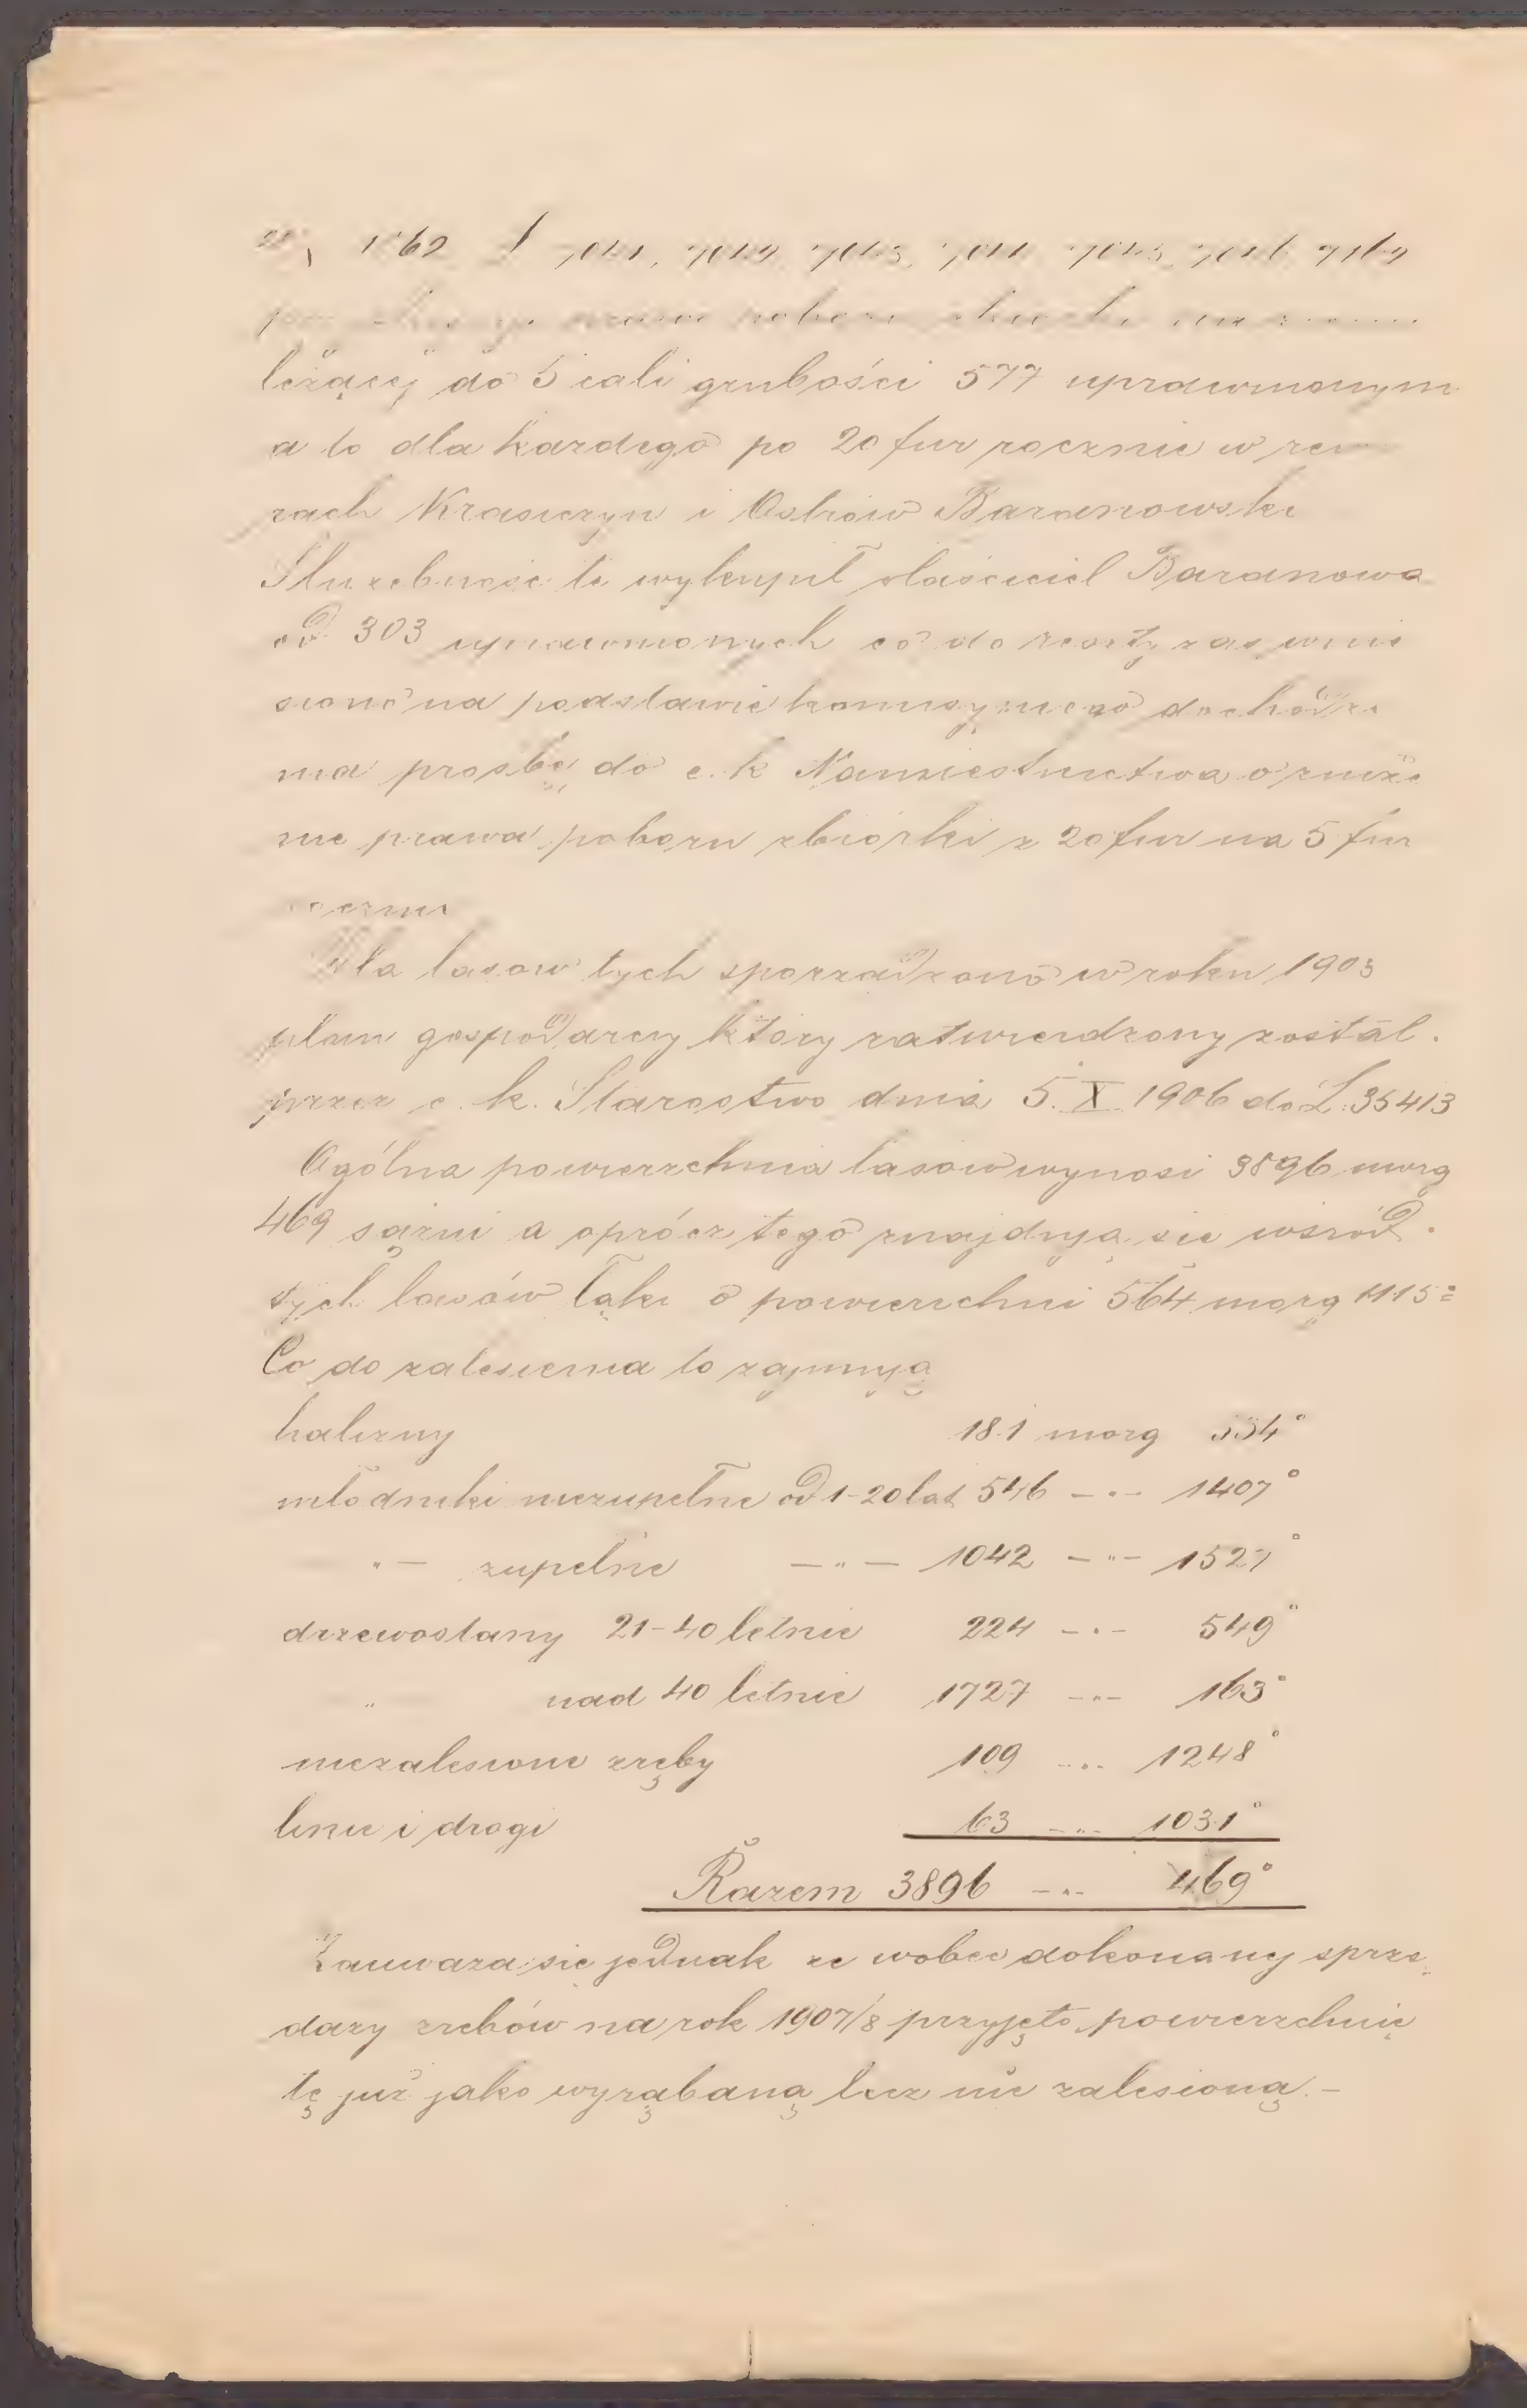 1862
prawo poboru
leżącej do 5 cali grubości 577 uprawnionym
a to dla każdego po 20 fur rocznie w rewi
rach Krasiczyn i Ostrów Baranowski
Służebność tę wykupił właściciel Baranowa
od 303 uprawnionych co do reszty zaś wnie
siono na podstawie komisyjnego dochodze
nia prosbę do c. k Namiestnictwa o zniże
nie prawa poboru zbiórki z 20 fur na 5 fur
rocznie
Dla lasow tych sporządzono w roku 1903
plan gospodarczy który zatwierdzony został
przez c. k. Starostwo dnia 5. X. 1906 do L: 35413
Ogólna powierzchnia lasow wynosi 3896 morg
469 sążni a oprócz tego znajdują się wśród
tych lasów łąki o powierzchni 564 morg 1115°
Co do zalesienia to zajmują
halizny 181 morg 534°
młodniki niezupełne od 1-20 lat 546 —"— 1407°
"— zupełne —"— 1042 —"— 1527°
drzewostany 21-40 letnie 224 —"— 549°
" nad 40 letnie 1727 —"— 163°
niezalesione zręby 109 —"— 1248°
linie i drogi 63 —"— 1031°
Razem 3896 —"— 469°
Zauważa się jednak ze wobec dokonanej sprze
dazy zrebów na rok 1907/8 przyjęto powierzchnię
tę już jako wyrąbaną lecz nie zalesioną.—